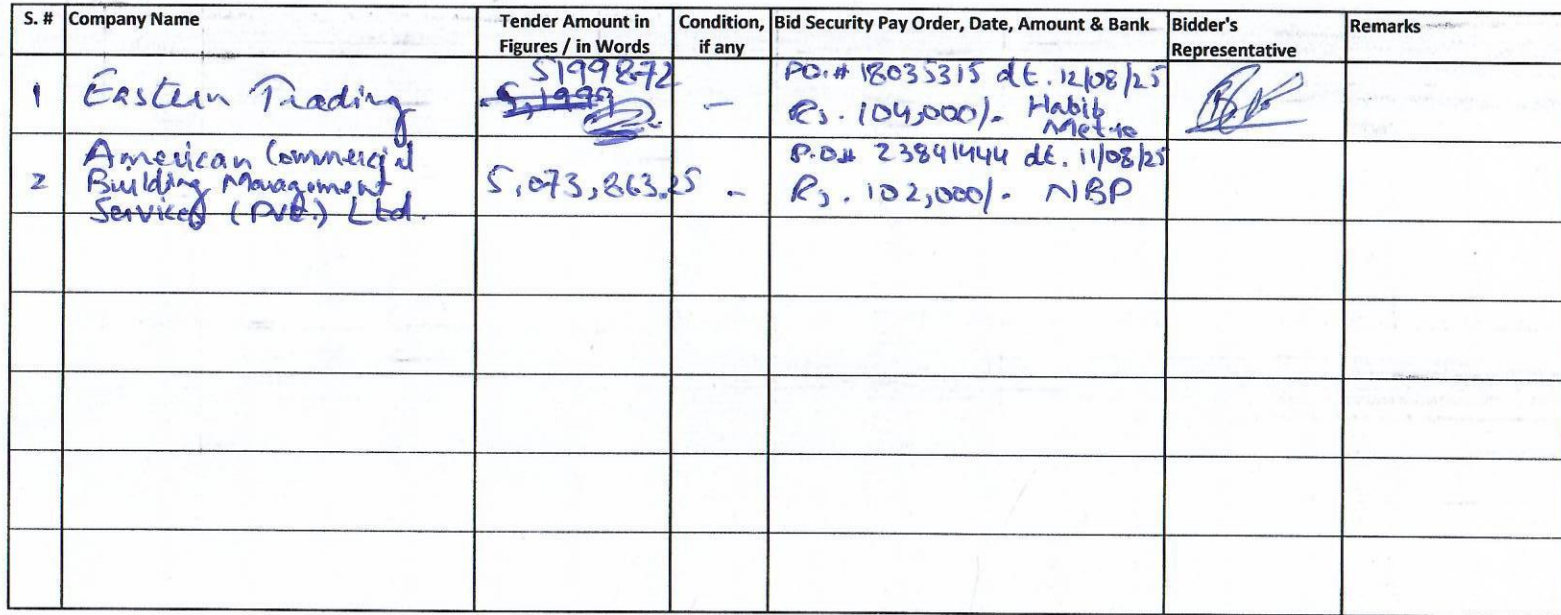 S. # Company Name Tender Amount in Figures / in Words Condition, if any Bid Security Pay Order, Date, Amount & Bank Bidder's Representative Remarks
1 Eastern Trading 5199872 - PO.# 18035315 dt. 12/08/25
5,1999 Rs. 104,000/- Habib Metro
2 American Commercial Building Management Services (Pvt.) Ltd. 5,073,863.25 - P.O# 23841444 dt. 11/08/25
Rs. 102,000/- NBP